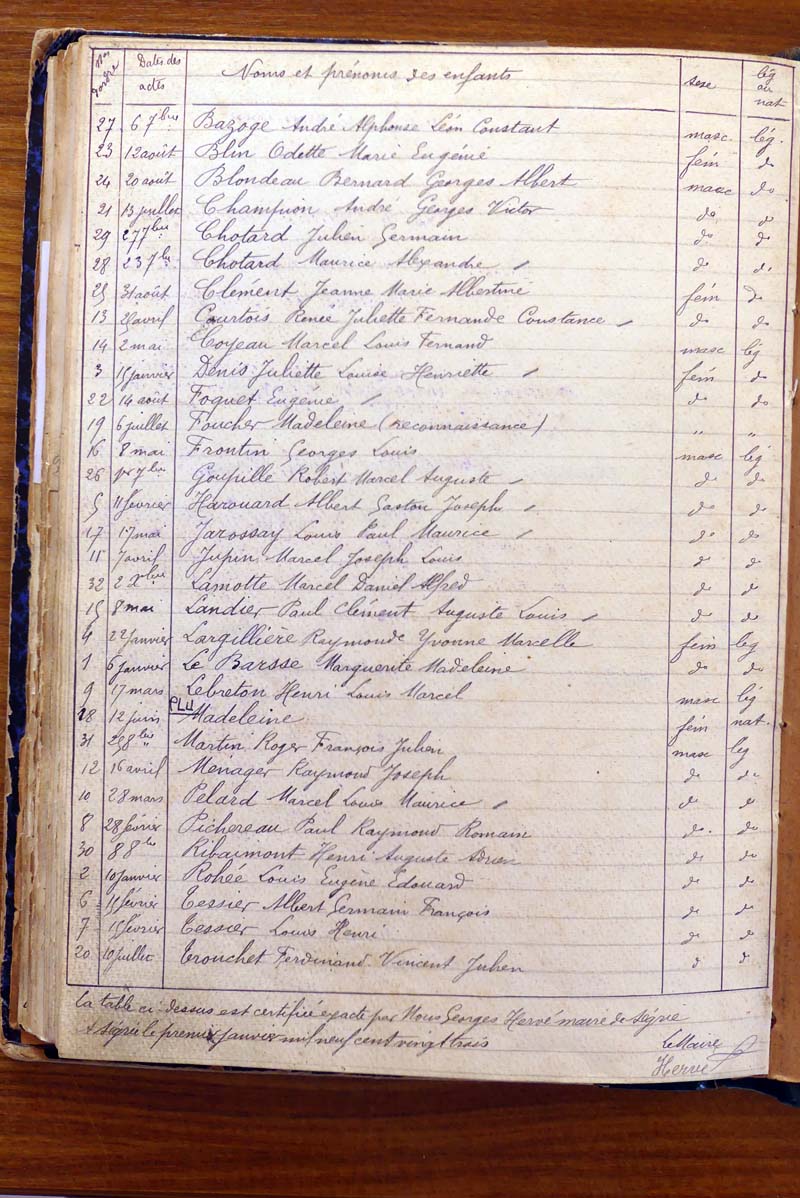 Nos d'ordre Dates des actes Noms et prénoms des enfants sexe lég ou nat
27 6 7bre Bazoge André Alphonse Léon Constant masc. lég.
23 12 août Blin Odette Marie Eugénie fém do
24 20 août Blondeau Bernard Georges Albert masc do
21 13 juillet Champion André Georges Victor do do
29 27 7bre Chotard Julien Germain do do
28 23 7bre Chotard Maurice Alexandre do do
25 31 août Clément Jeanne Marie Albertine fém do
13 avril Courtois Renée Juliette Fernande Constance do do
14 2 mai Coyeau Marcel Louis Fernand masc lég
3 15 janvier Denis Juliette Louise Henriette fém do
22 14 août Foquet Eugénie do do
19 6 juillet Foucher Madeleine (reconnaissance) " "
16 8 mai Frontin Georges Louis masc lég
26 1er 7bre Goupille Robert Marcel Auguste do do
5 11 février Harouard Albert Gaston Joseph do do
17 17 mai Jarossay Louis Paul Maurice do do
11 7 avril Jupin Marcel Joseph Louis do do
32 2 Xbre Lamotte Marcel Daniel Alfred do do
15 8 mai Landier Paul Clément Auguste Louis do do
4 22 janvier Largillière Raymonde Yvonne Marcelle fém lég
1 6 janvier Le Barsse Marguerite Madeleine do do
9 17 mars Lebreton Henri Louis Marcel masc lég
18 12 juin PLU Madeleine fém nat.
31 25 8bre " Martin Roger François Julien masc lég
12 16 avril Ménager Raymond Joseph do do
10 28 mars Pelard Marcel Louis Maurice do do
8 28 février Pichereau Paul Raymond Romain do. do
30 8 8bre Ribaimont Henri Auguste Adrien do do
2 10 janvier Rohée Louis Eugène Edouard do do
6 15 février Tessier Albert Germain François do do
7 15 février Tessier Louis Henri do do
20 10 juillet Trouchet Ferdinand Vincent Julien do do
La table ci-dessus est certifiée exacte par Nous Georges Hervé maire de Ségrie
A Ségrie le premier janvier mil neuf cent vingt trois
Le Maire
Hervé